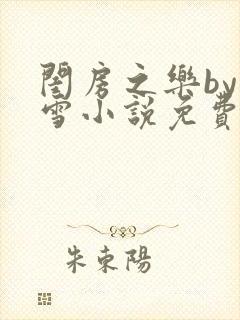 閨房之樂by
雪小說免費
朱東陽